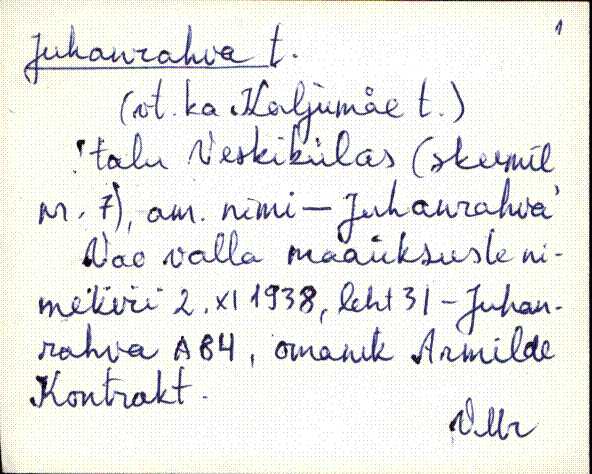 1
Juhanrahva t.
(vt. ka Kaljumäe t.)
! talu Veskikülas (skeemil
nr. 7), am. nimi — Juhanrahva
Vao valla maaüksuste ni-
mekiri 2. XI 1938, leht 31 - Juhan-
rahva A84, omanik Armilde
Kontrakt.